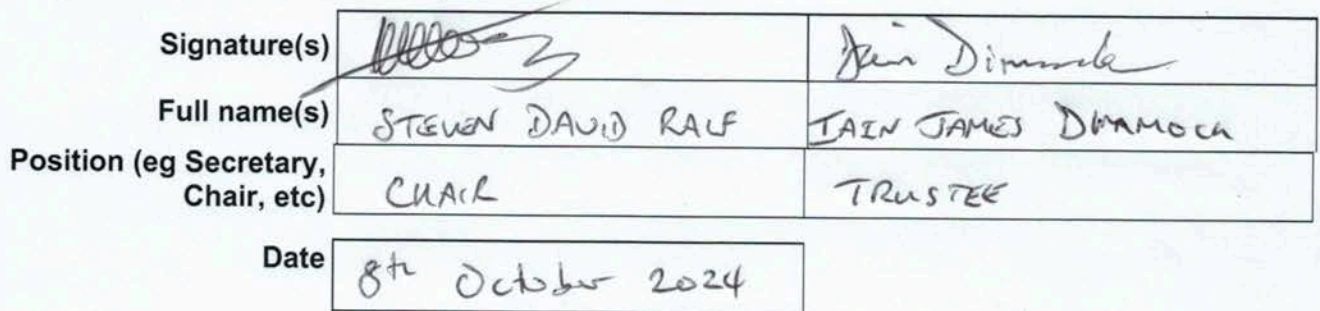 Signature(s) Iain Dimmock
Full name(s) STEVEN DAVID RALF IAIN JAMES DIMMOCK
Position (eg Secretary,
Chair, etc) CHAIR TRUSTEE
Date 8th October 2024